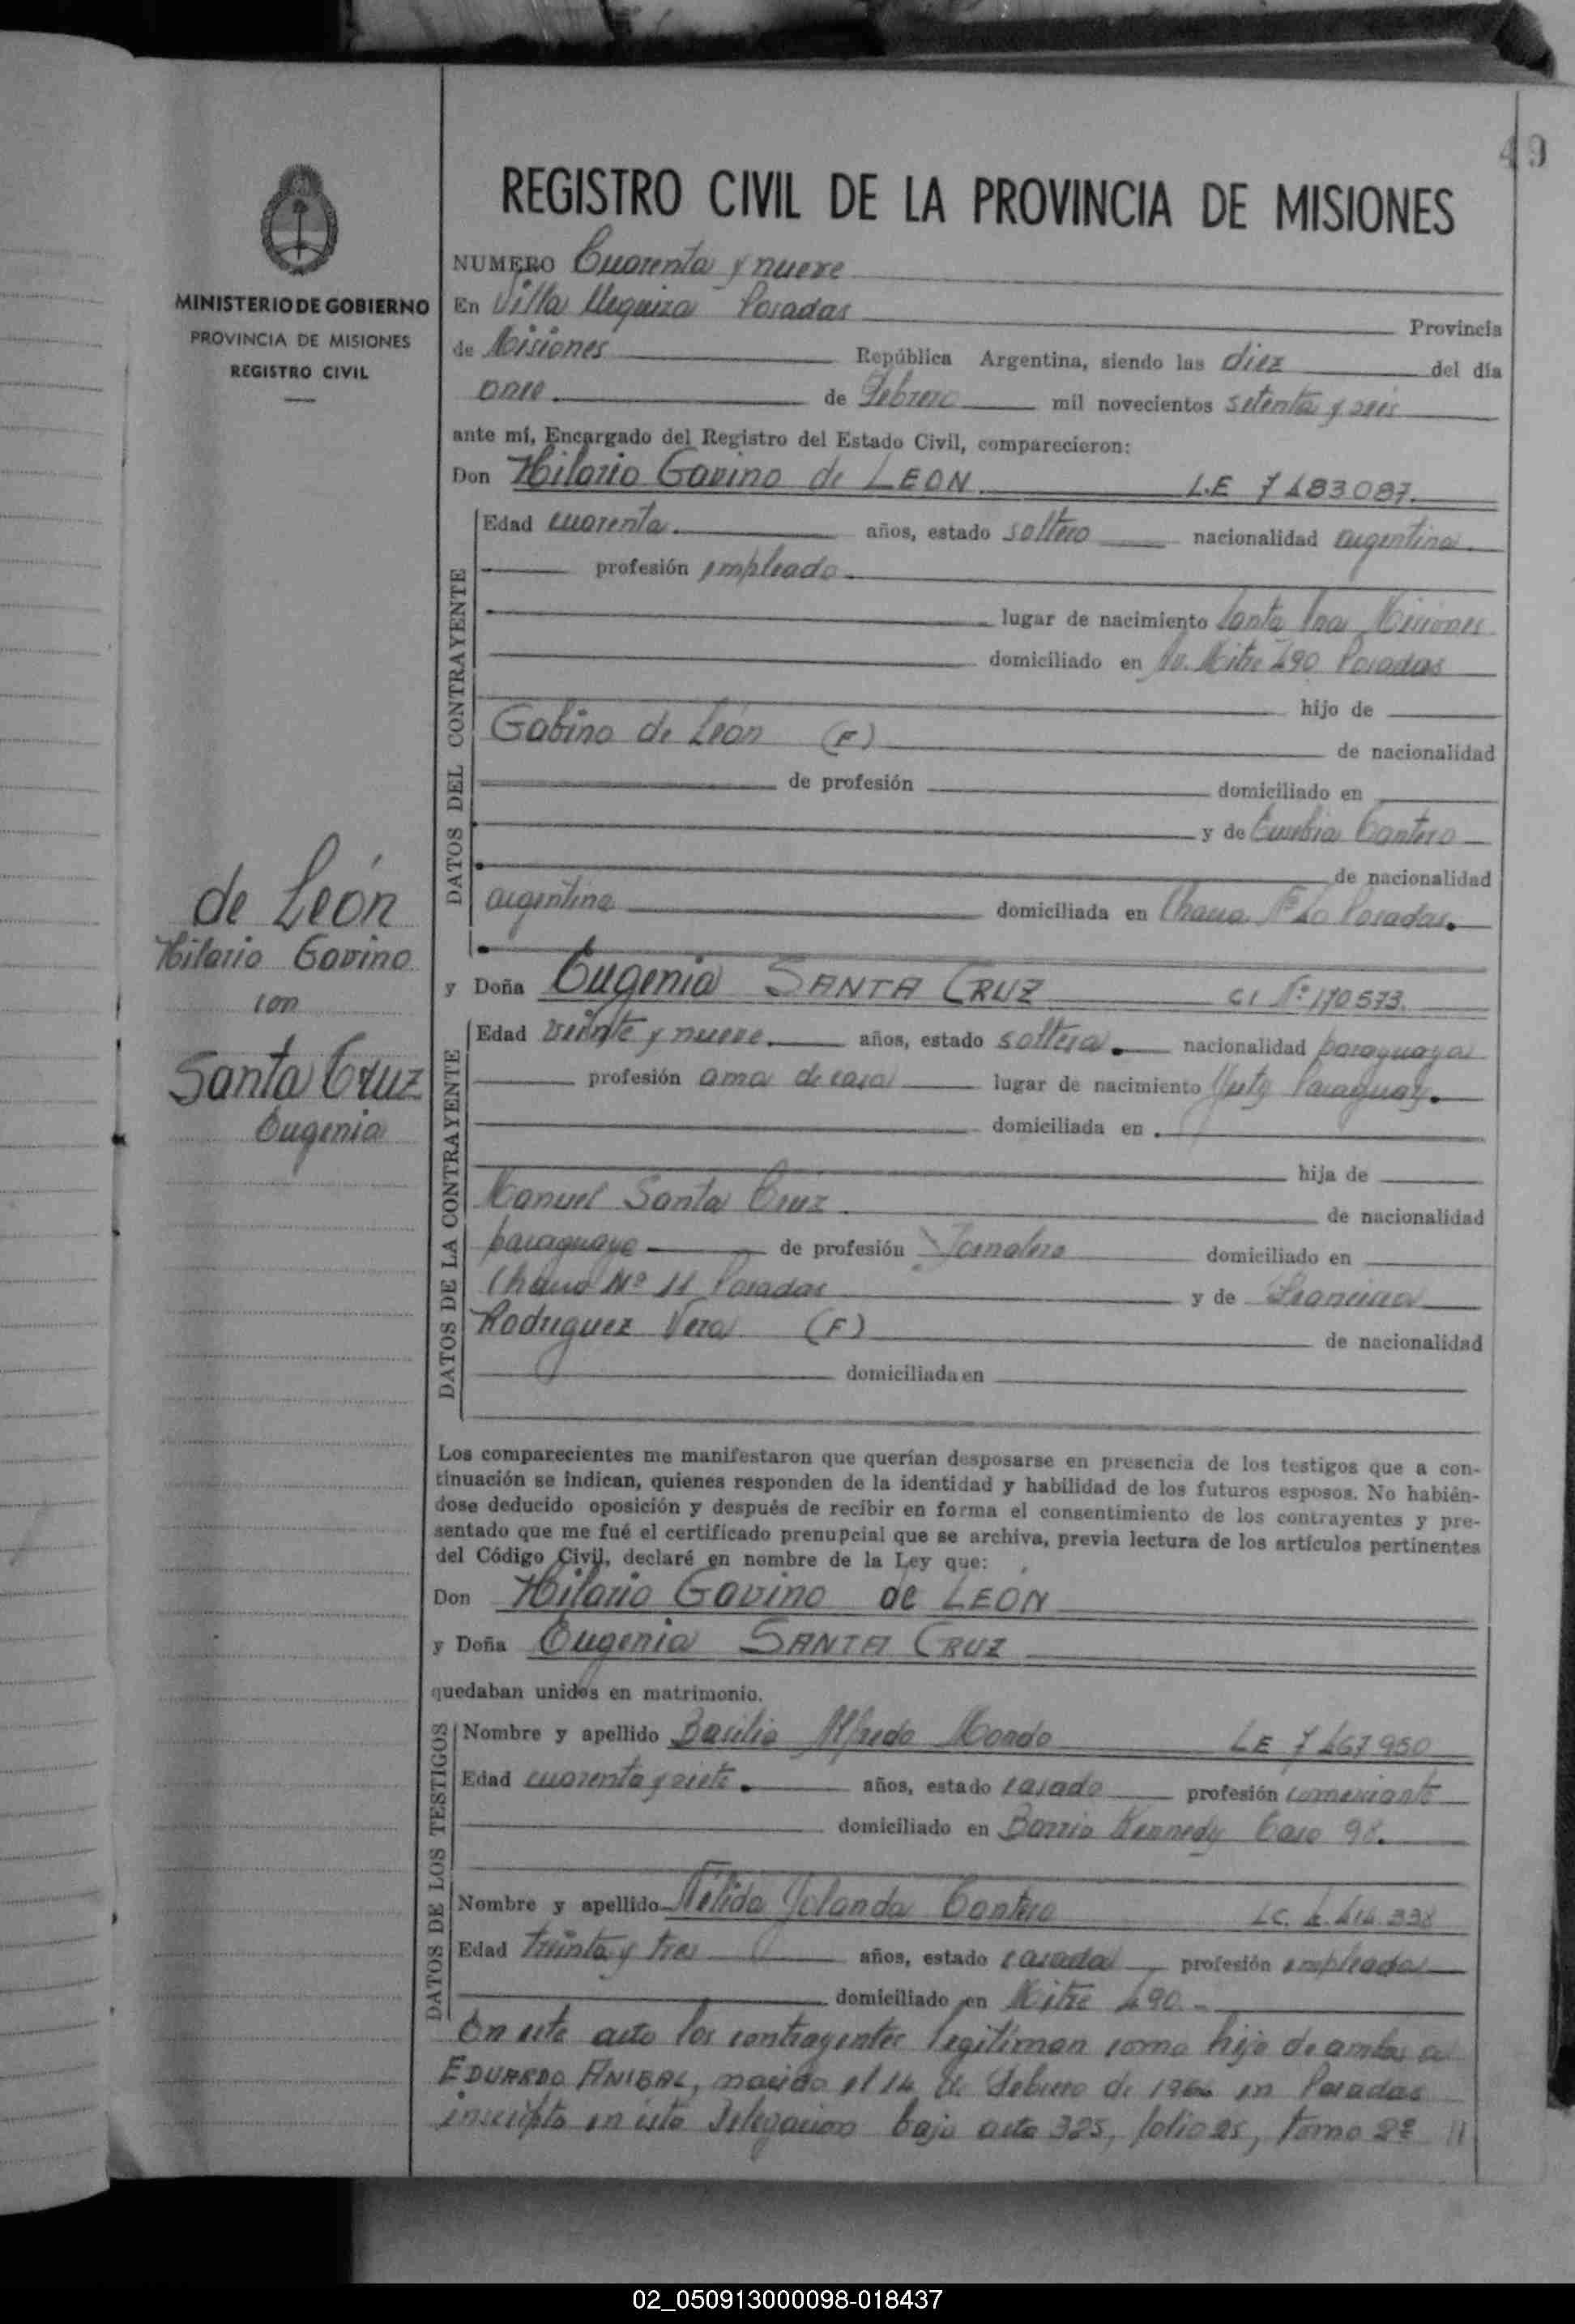 49
REGISTRO CIVIL DE LA PROVINCIA DE MISIONES
MINISTERIO DE GOBIERNO
PROVINCIA DE MISIONES
REGISTRO CIVIL
NUMERO Cuarenta y nueve
En Villa Urquiza Posadas Provincia
de Misiones República Argentina, siendo las diez del día
once de Febrero mil novecientos setenta y seis
ante mí, Encargado del Registro del Estado Civil, comparecieron:
Don Hilario Gavino de LEON L.E 7 483 087.
DATOS DEL CONTRAYENTE
Edad cuarenta años, estado soltero nacionalidad argentina
profesión empleado
lugar de nacimiento Santa Ana Misiones
domiciliado en Av. Mitre 490 Posadas
hijo de
Gabino de León (F) de nacionalidad
de profesión domiciliado en
y de Eusebia Cantero
de nacionalidad
argentina domiciliada en Chacra Posadas.
de León
Hilario Gavino
con
Santa Cruz
Eugenia
y Doña Eugenia SANTA CRUZ CI Nº 170573.
DATOS DE LA CONTRAYENTE
Edad veinte y nueve años, estado soltera nacionalidad paraguaya
profesión ama de casa lugar de nacimiento Yuty Paraguay.
domiciliada en
hija de
Manuel Santa Cruz de nacionalidad
paraguayo de profesión Jornalero domiciliado en
Chacra Nº 11 Posadas y de Francisca
Rodriguez Vera (F) de nacionalidad
domiciliada en
Los comparecientes me manifestaron que querían desposarse en presencia de los testigos que a con-
tinuación se indican, quienes responden de la identidad y habilidad de los futuros esposos. No habién-
dose deducido oposición y después de recibir en forma el consentimiento de los contrayentes y pre-
sentado que me fué el certificado prenupcial que se archiva, previa lectura de los artículos pertinentes
del Código Civil, declaré en nombre de la Ley que:
Don Hilario Gavino de LEÓN
y Doña Eugenia SANTA CRUZ
quedaban unidos en matrimonio.
DATOS DE LOS TESTIGOS
Nombre y apellido Basilio Alfredo Mondo LE 7 467 950
Edad cuarenta y siete años, estado casado profesión comerciante
domiciliado en Barrio Kennedy Casa 98.
Nombre y apellido Nélida Yolanda Cantero LC. 4.414.338
Edad treinta y tres años, estado casada profesión empleada
domiciliado en Mitre 490
En este acto los contrayentes legitiman como hijo de ambos a
EDUARDO ANIBAL, nacido el 14 de Febrero de en Posadas
inscripto en esta Delegacion bajo acta 325, folio 25, tomo 2º
02_050913000098-018437